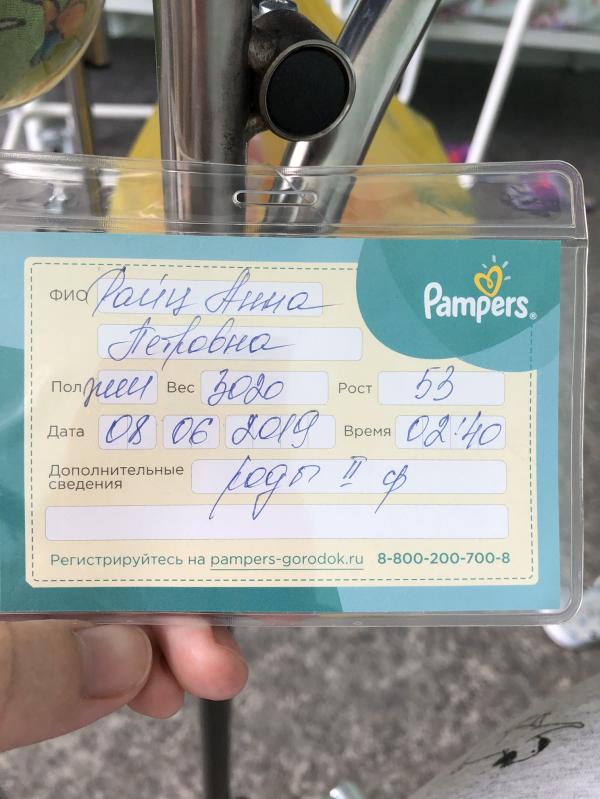 Pampers®
ФИО Райц Анна
Петровна
Пол жен Вес 3020 Рост 53
Дата 08 06 2019 Время 02:40
Дополнительные сведения роды II ф
Регистрируйтесь на pampers-gorodok.ru 8-800-200-700-8